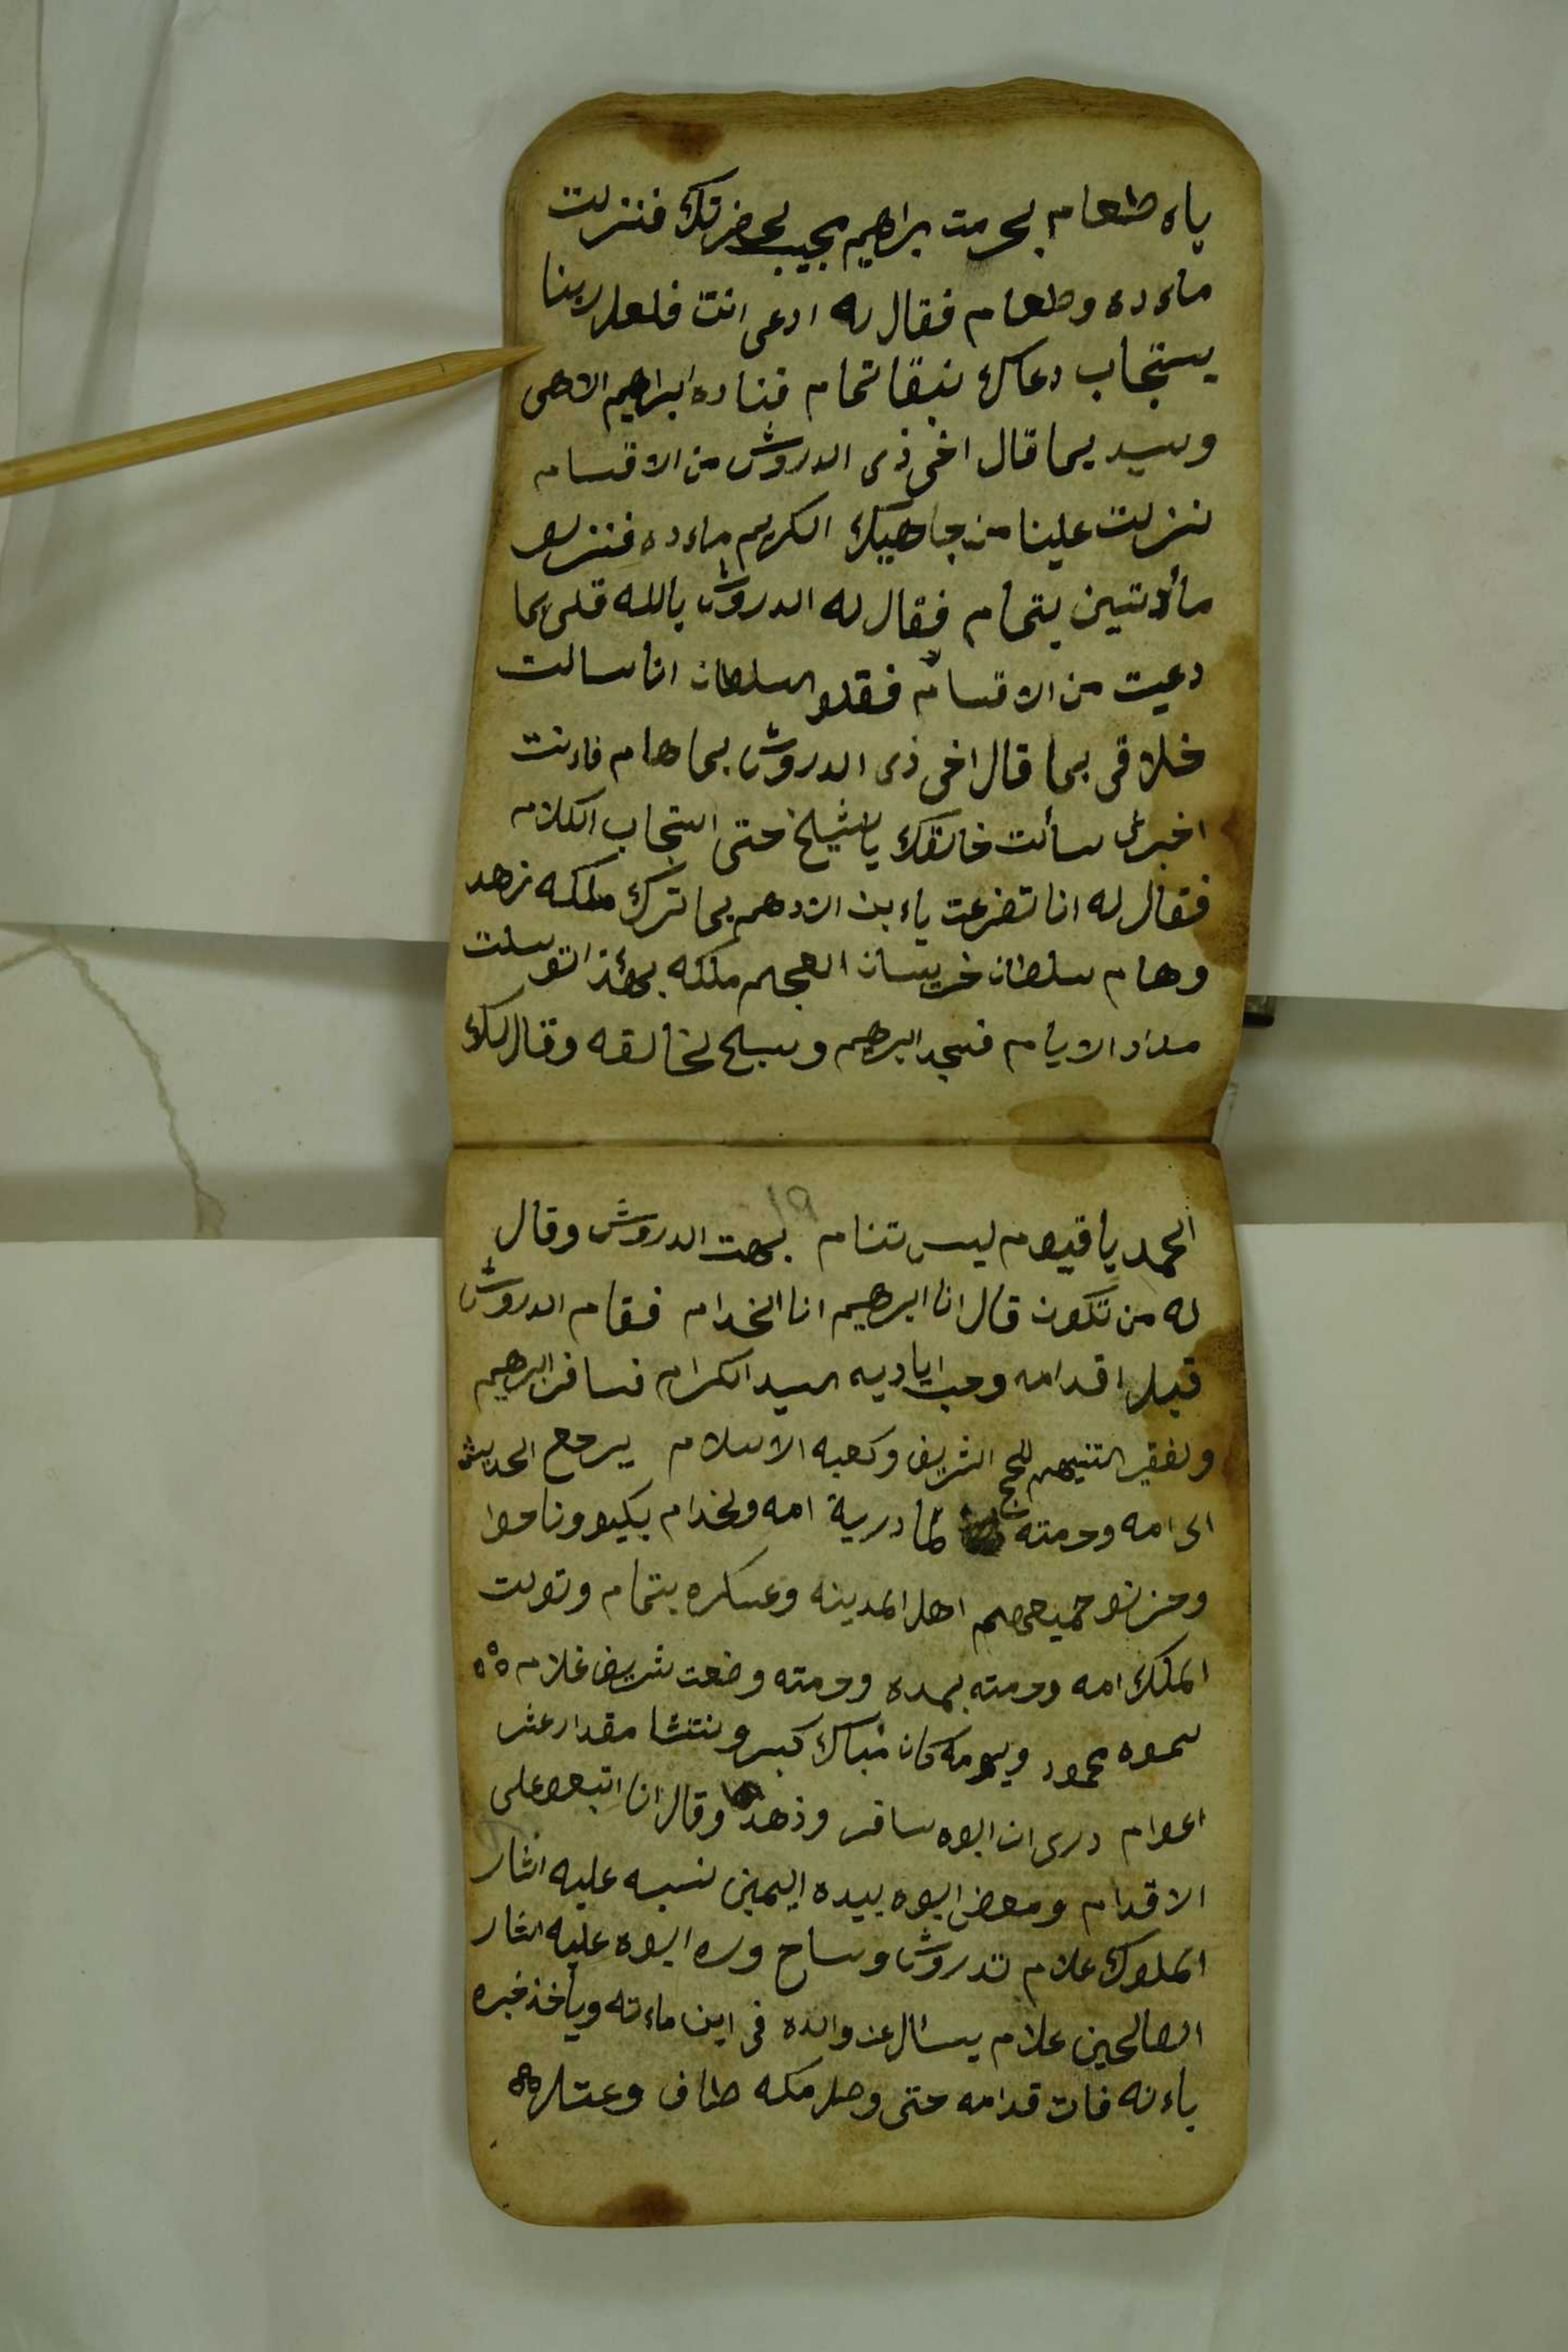 ياه طعام بحرمت براهيم بجيب لحضرتك فنزلت
ماءده وطعام فقال له ادعى انت فلعل ربنا
يستجاب دعاك نبقا تمام فناده ابراهيم الاهى
وسيد يما قال اخى ذى الدروش من الاقسام
نزلت علينا من جاهيك الكريم ماءده فنزلو
مأدتين بتمام فقال له الدروش بالله قلى بما
دعيت من الاقسام فقلو السلطان انا سالت
خلاقى بما قال اخى ذى الدروش بما هام فاءنت
اخبرنى سألت خالقك يا شيخ حتى استجاب الكلام
فقال له انا تضرعت ياء بن الادهم بما ترك ملكه زهد
وهام سلطان خريسان العجم ملكه بهذا توسلت
مداد الايام فسجد ابرهيم وسبح لخالقه وقال لك
الحمد يا قيوم ليس تنام بهت الدروش وقال
له من تكون قال انا ابرهيم انا الخدام فقام الدروش
قبل اقدامه وحب اياديه السيد الكرام فسافر ابرهيم
ولفقير التنيهم للحج الشريف وكعبه الاسلام يرجع الحديث
الى امه وحرمته لما درية امه ولخدام بكيو وناحوا
وحزنو جميعهم اهل المدينه وعسكره بتمام وتولت
الملك امه وحرمته بمده وحرمته وضعت شريف غلام ٥٥
سموه محمود ويومه كان مباك كبر ونتشا مقدار عشر
اعوام درى ان ابوه سافر وذهد وقال انا اتبعو على
الاقدام ومعض ابوه بيده اليمين نسبه عليه اثار
الملوك علام تدروش وساح وره ابوه عليه اثار
الصالحين علام يسال عن والده فى اين ماءته ويأخذ خبره
ياءنه فات قدامه حتى وصل مكه طاف وعتل